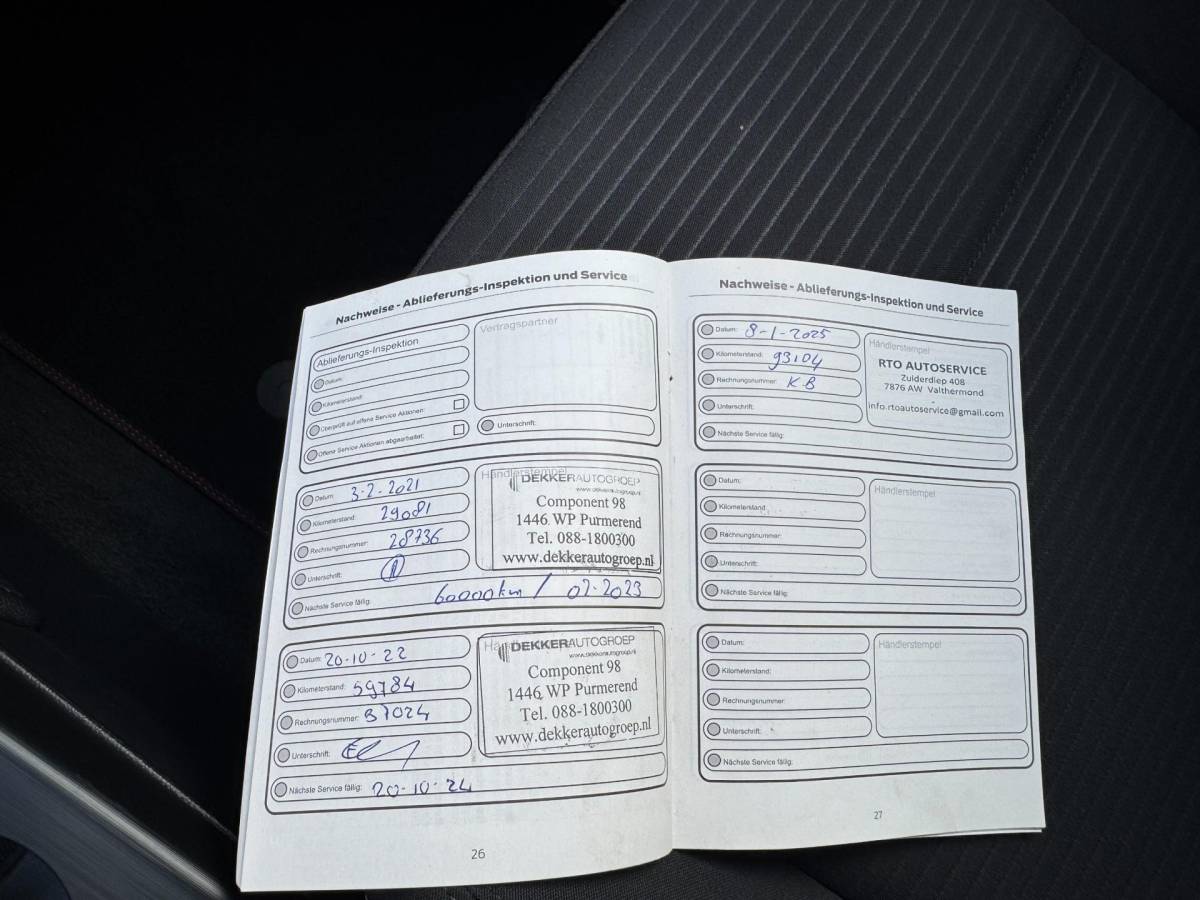 Nachweise - Ablieferungs-Inspektion und Service
Ablieferungs-Inspektion
Datum:
Kilometerstand:
Überprüft auf offene Service Aktionen:
Offene Service Aktionen abgearbeitet:
Vertragspartner
Unterschrift:
Datum: 3-2-2021
Kilometerstand: 29081
Rechnungsnummer: 28736
Unterschrift:
Nächste Service fällig: 60000km / 02-2023
Händlerstempel
DEKKERAUTOGROEP
www.dekkerautogroep.nl
Component 98
1446 WP Purmerend
Tel. 088-1800300
www.dekkerautogroep.nl
Datum: 20-10-22
Kilometerstand: 59784
Rechnungsnummer: 37024
Unterschrift:
Nächste Service fällig: 20-10-24
DEKKERAUTOGROEP
www.dekkerautogroep.nl
Component 98
1446 WP Purmerend
Tel. 088-1800300
www.dekkerautogroep.nl
26
Nachweise - Ablieferungs-Inspektion und Service
Datum: 8-1-2025
Kilometerstand: 93104
Rechnungsnummer: KB
Unterschrift:
Nächste Service fällig:
Händlerstempel
RTO AUTOSERVICE
Zuiderdiep 408
7876 AW Valthermond
info.rtoautoservice@gmail.com
Datum:
Kilometerstand:
Rechnungsnummer:
Unterschrift:
Nächste Service fällig:
Händlerstempel
Datum:
Kilometerstand:
Rechnungsnummer:
Unterschrift:
Nächste Service fällig:
Händlerstempel
27